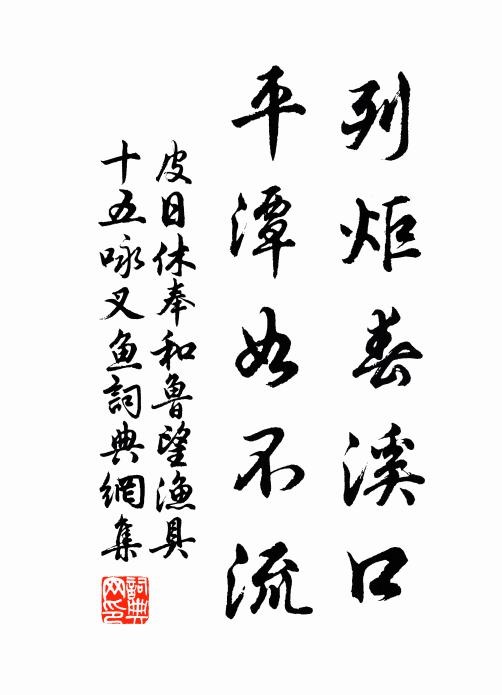 列炬春溪口
平潭如不流
皮日休奉和魯望漁具
十五咏叉鱼詞典網集
詞典
网印